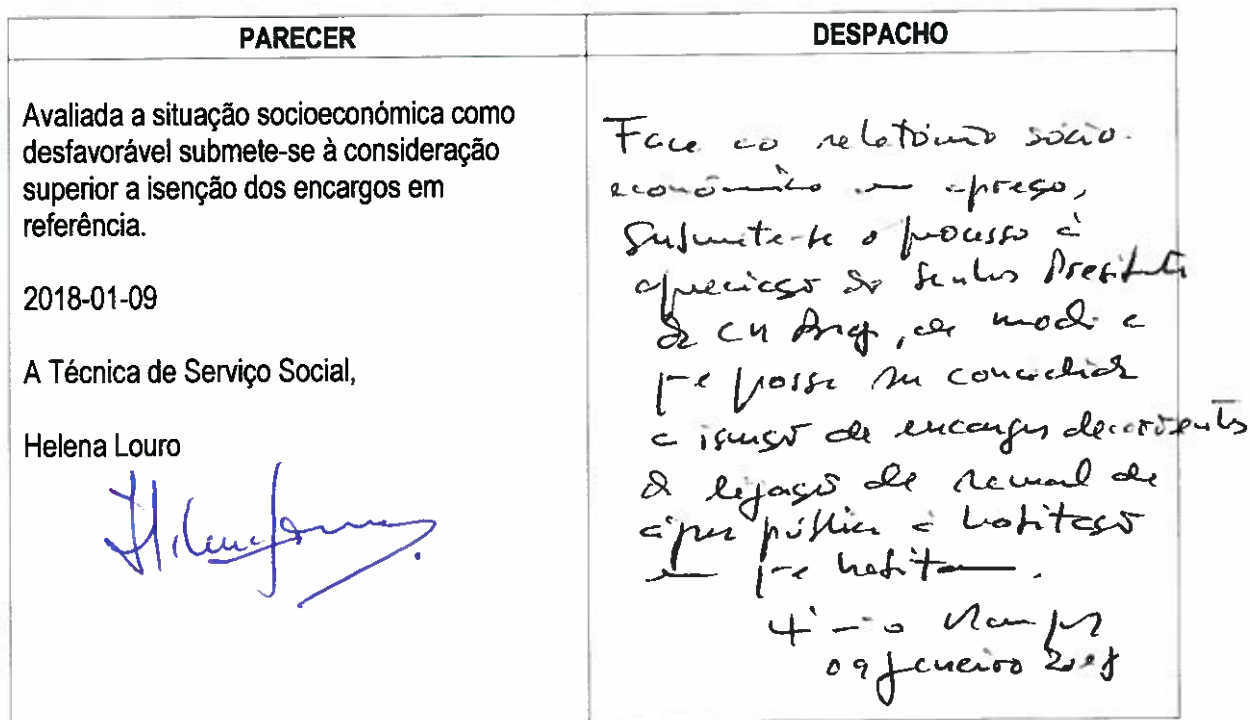 PARECER
DESPACHO
Avaliada a situação socioeconómica como
desfavorável submete-se à consideração
superior a isenção dos encargos em
referência.
2018-01-09
A Técnica de Serviço Social,
Helena Louro
Face ao relatório sócio-
económico em apreço,
Submete-se o processo à
apreciação do Senhor Presidente
da CM, de modo a
que possa ser concedida
a isenção de encargos decorrentes
da ligação de ramal de
água pública à habitação
em que habitam.
09 janeiro 2018